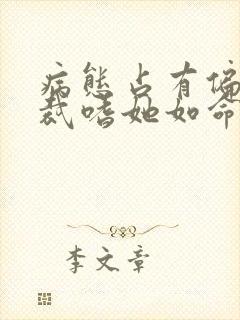 病态占有偏
裁嗜她如命
李文章